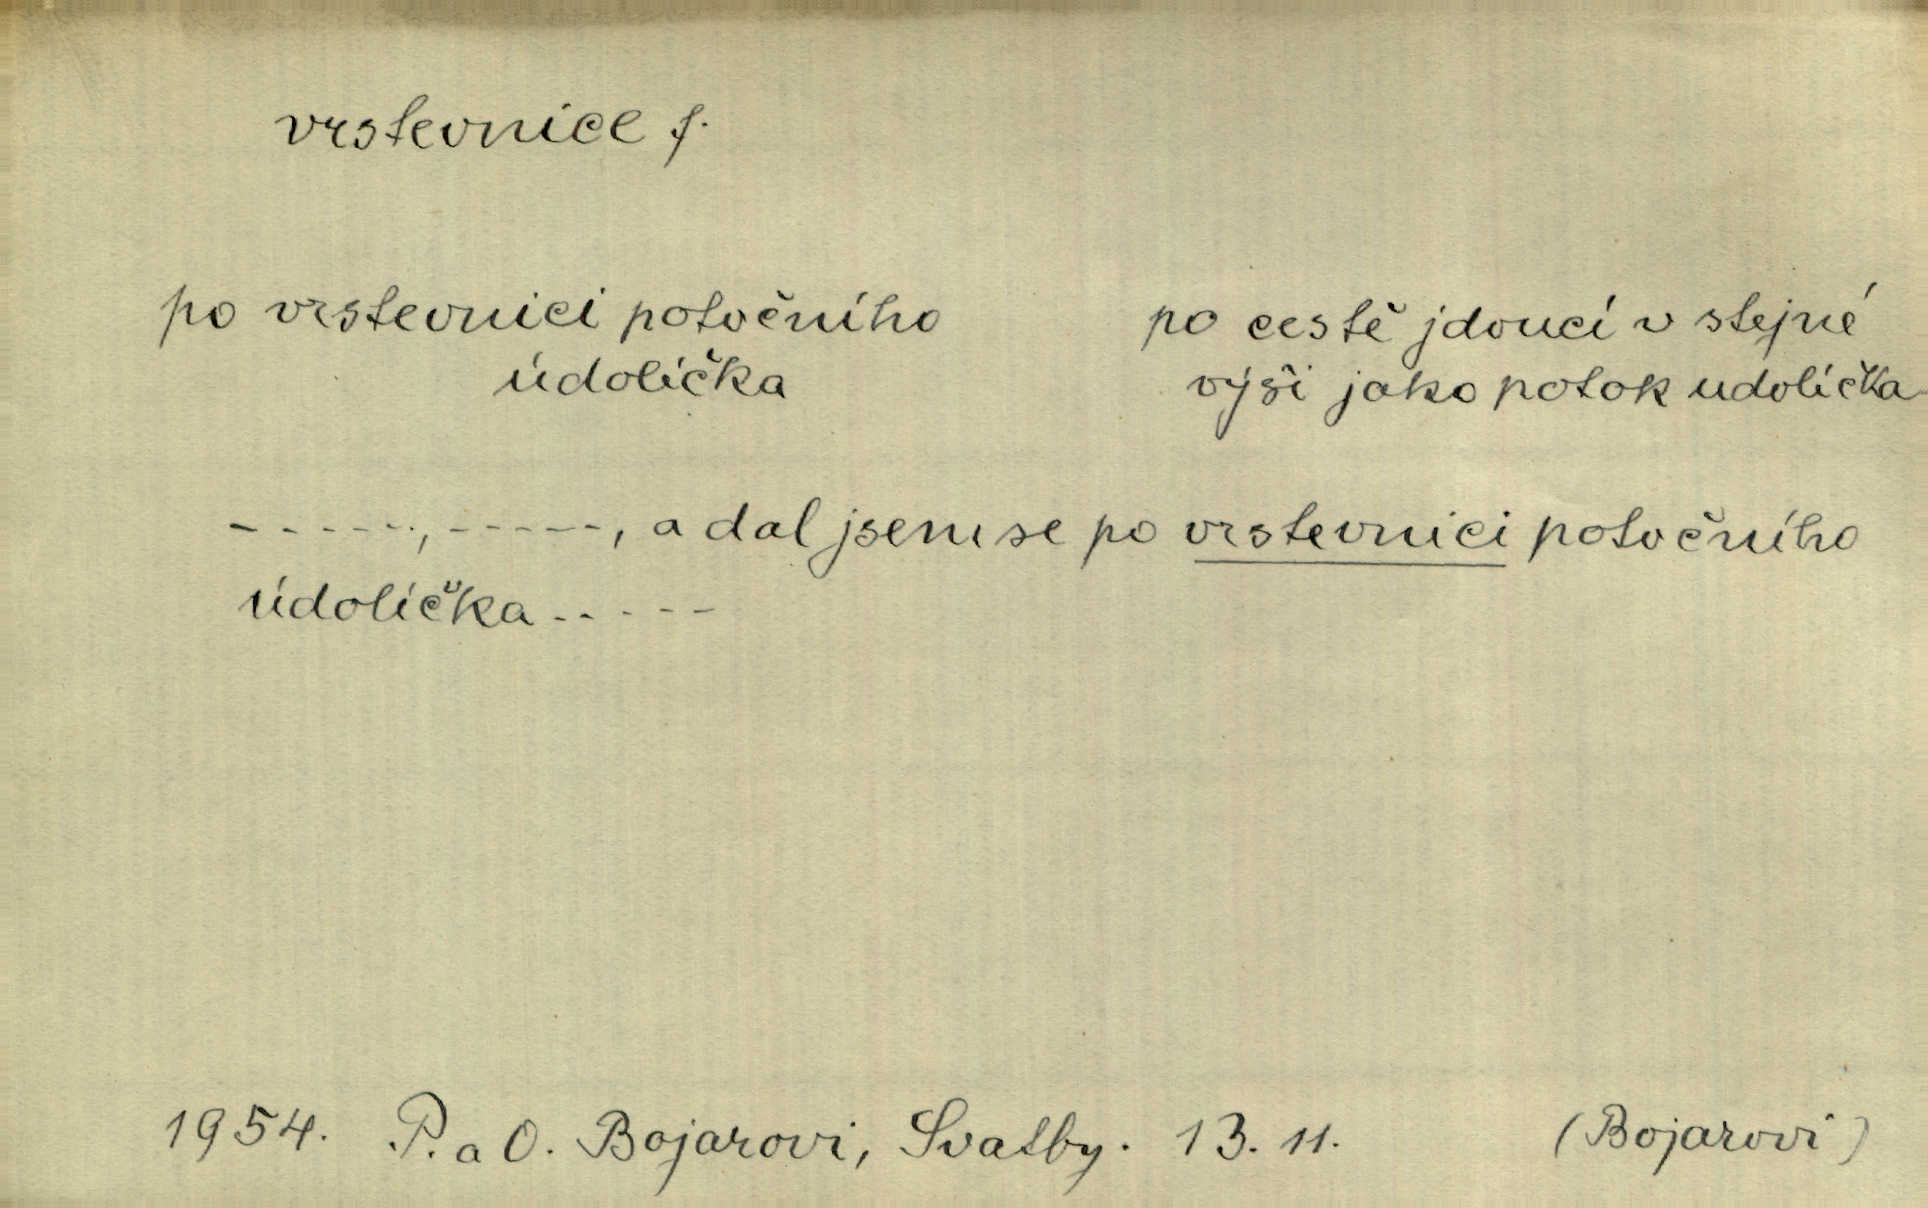 vrstevnice f.
po vrstevnici potočního
údolíčka
po cestě jdoucí v stejné
výši jako potok udolíčka
- - - - - -, - - - - - -, a dal jsem se po vrstevnici potočního
údolíčka - - - - -
1954. P. a O. Bojarovi, Svatby. 13. 11. (Bojarovi)